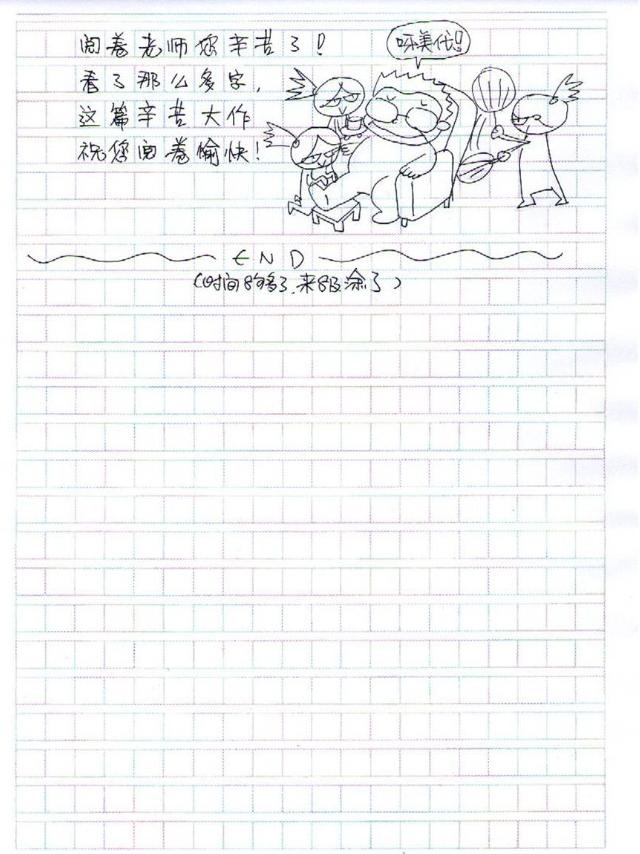 阅卷老师您辛苦了！
看了那么多字，
这篇辛苦大作
祝您阅卷愉快！
呀美代！
END
(时间够多了，来涂了)